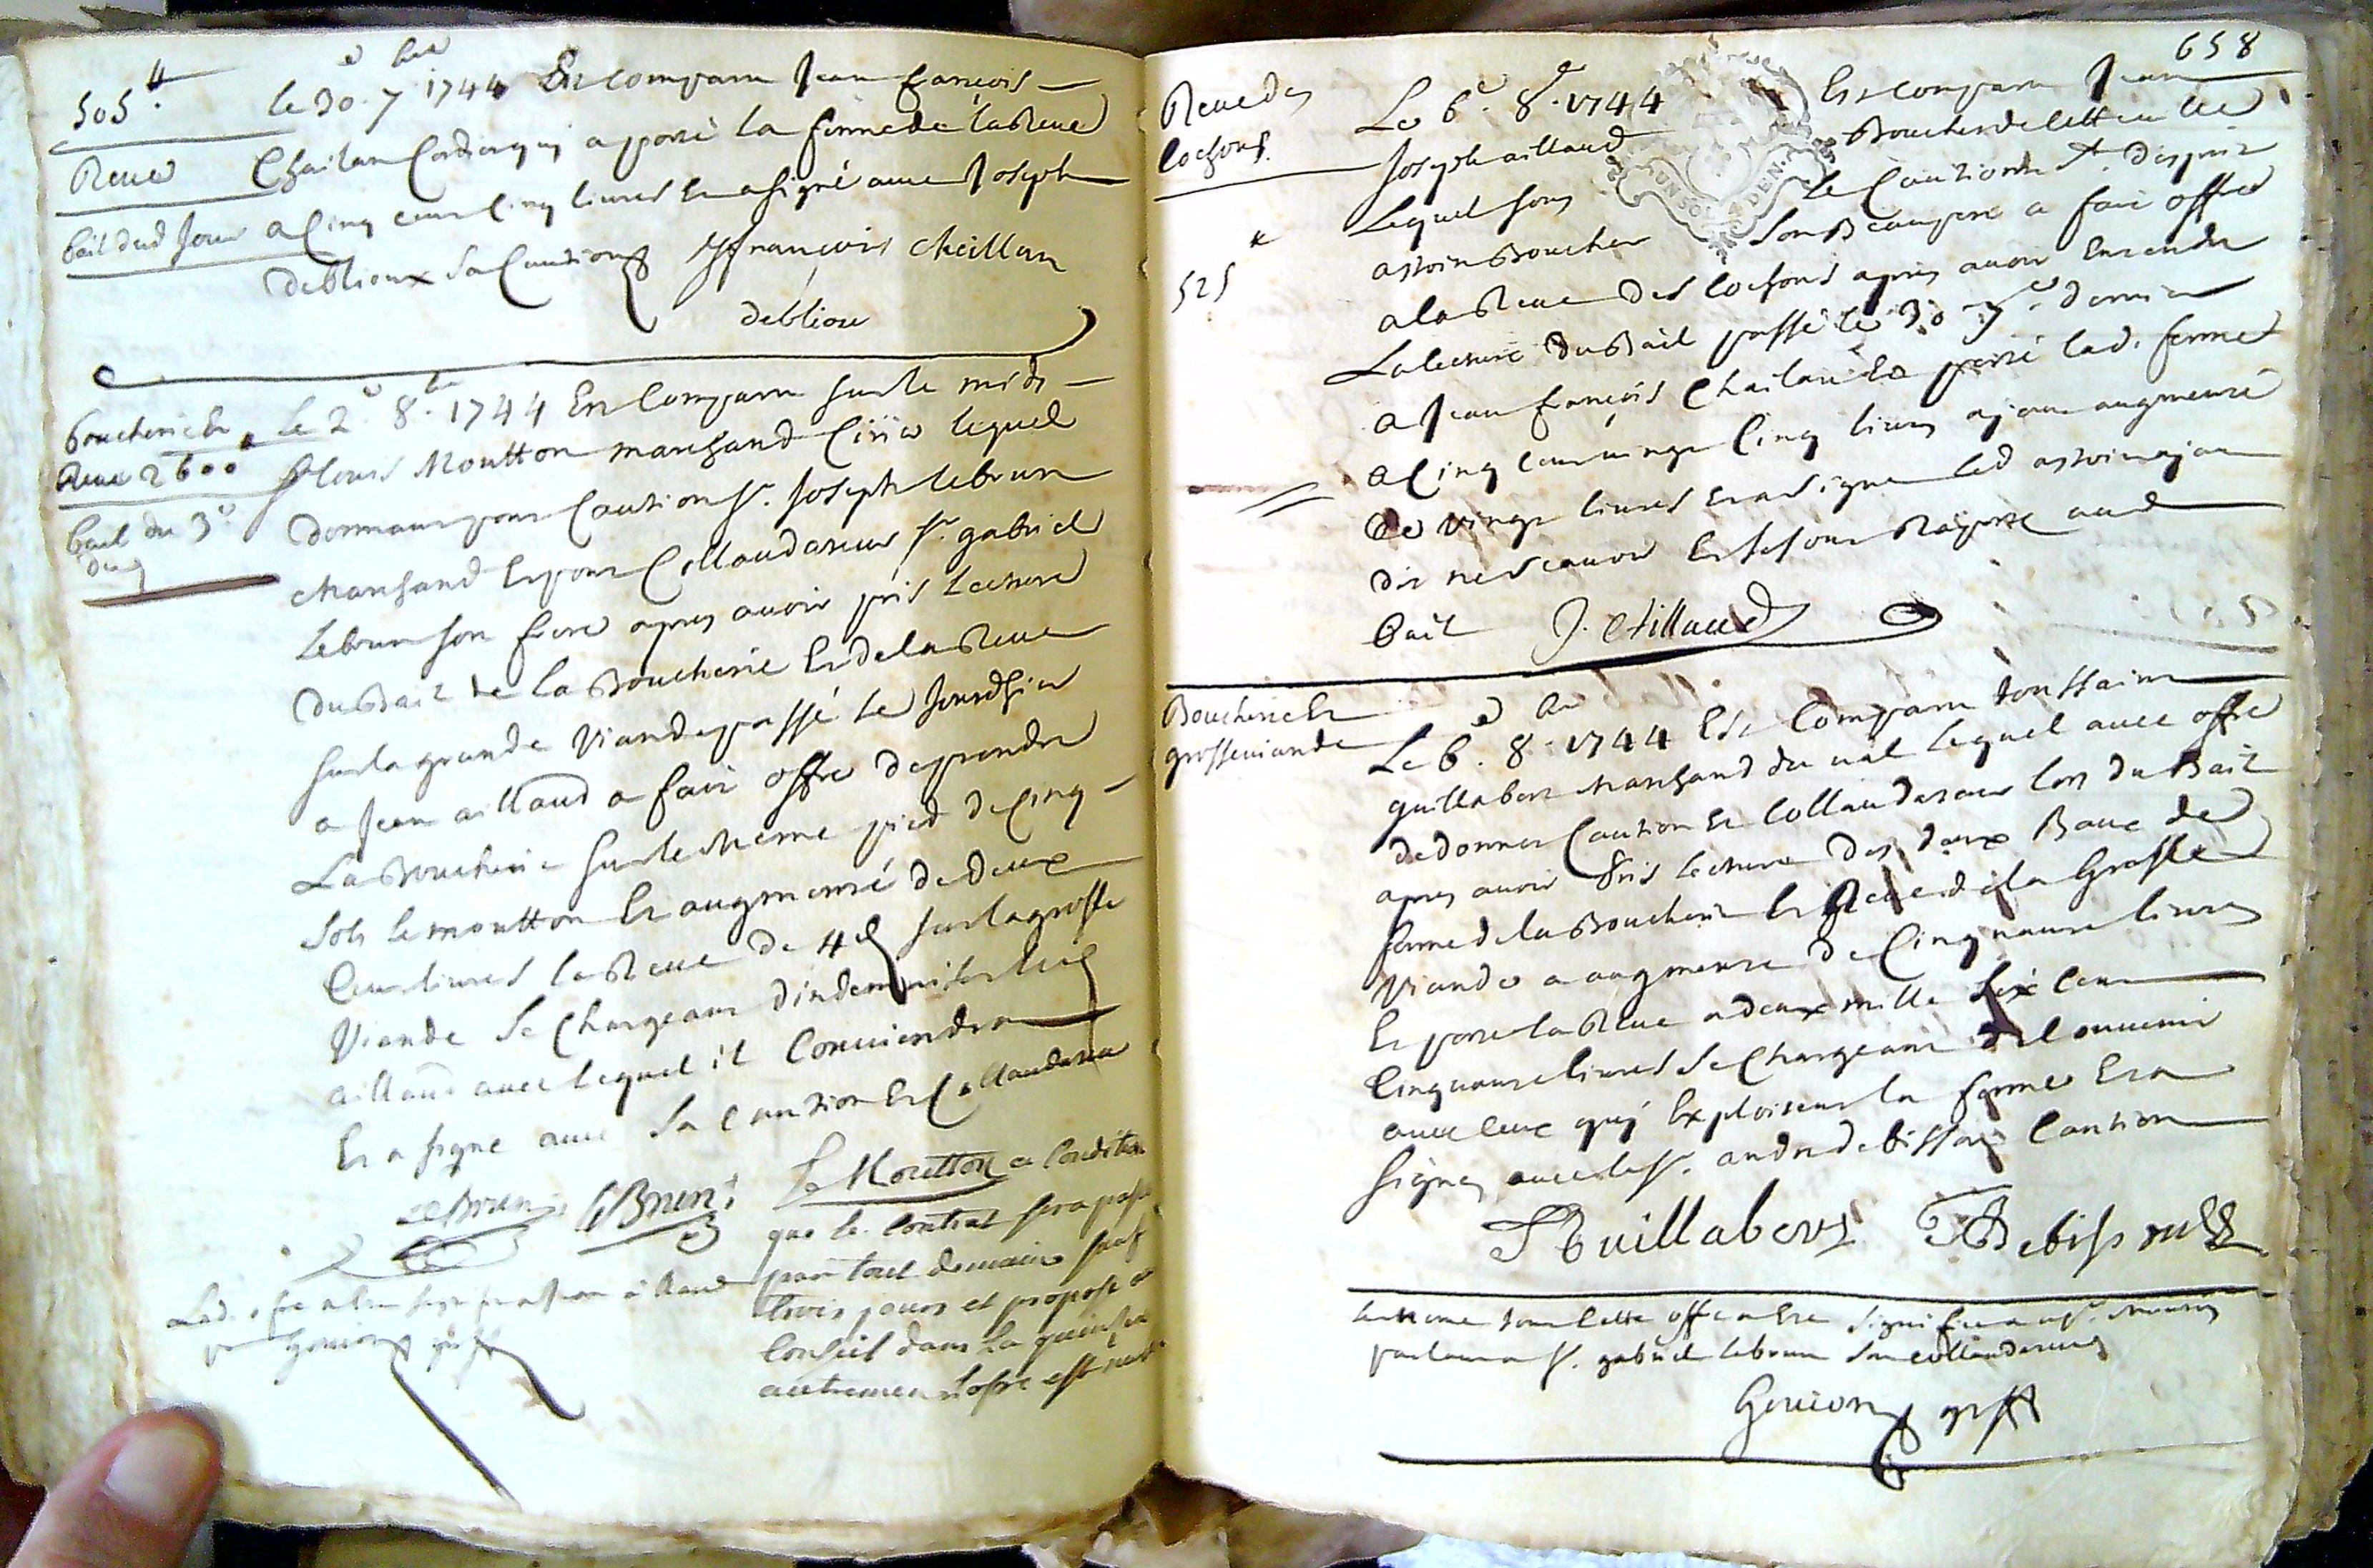 505 ₶
le 30e 7bre 1744 Est Comparu Jean françois
Reve
Chailan qui a porté la ferme de la Reve
bail dud Jour
a Cinq cens Cinq livres Et a signé avec Joseph
deblioux sa Caution JFrançois Chaillan
deblioux
boucherie Et
Reve 2600 ₶
bail du 3e
dud
le 2e 8bre 1744 Est Comparu sur le midy
Sr louis Moutton marchand Cirier lequel
donnant pour Caution Sr. Joseph lebrun
Marchand Et pour Collaudateur Sr. gabriel
Lebrun son frere apres avoir pris Lecture
du Bail de la Boucherie Et de la Reve
sur la grande Viande passé le Jourdhier
a Jean aillaud a fait offre de prendre
La Boucherie sur le meme pied de Cinq
sols le moutton Et augmenté de deux
Cens livres la Reve de 4d sur la grosse
Viande se Chargeant dindemniser led
aillaud avec lequel il Conviendra
Et a signé avec sa Caution Et Collaudateur
LeBrun LeBrun Ls Moutton a Condition
que le Contrat sera passé
par tout demain sauf
trois jours et proposé au
Conseil dans la quinzene
autremen lofre est nulle
Led. ofre a Jean aillaud
par Gouion gref
658
UN SOL DEN.
Reve des
Cochons
525 ₶
Le 6e 8bre 1744 Est Comparu Jean
Joseph aillaud Boucher de cette ville
Lequel sous le Cautionnt Sr. desprit
astoin Boucher son Beaupere a fait offre
a la Reve des Cochons apres avoir Entendu
La lecture du Bail passé le 30 7bre dernier
a Jean françois Chailan Et a porté lad. ferme
a Cinq Cens vingt Cinq livres ayant augmenté
de vingt livres Et a signé led astoin ayant
dit ne scavoir Et se sont Raporté aud
Bail J. Aillaud
Boucherie Et
grosse viande
Le 6e 8bre 1744 Est Comparu toussaint
guillabert Marchand du lequel avec offre
de donner Caution Et Collaudateur lors du Bail
apres avoir pris lecture des deux Baux de
ferme de la Boucherie Et Reve de la Grosse
Viande a augmenté de Cinquante livres
Et porté la Reve a deux mille six Cens
Cinquante livres se Chargeant de Convenir
avec ceux quy Exploitent la ferme Et a
signé avec le Sr. andre debissan Caution
TGuillabert
Le meme Jour Cette offre a Ete Signifiée a Sr. Moutton
parlant a Sr. gabriel lebrun son Collaudateur
Gouion gref